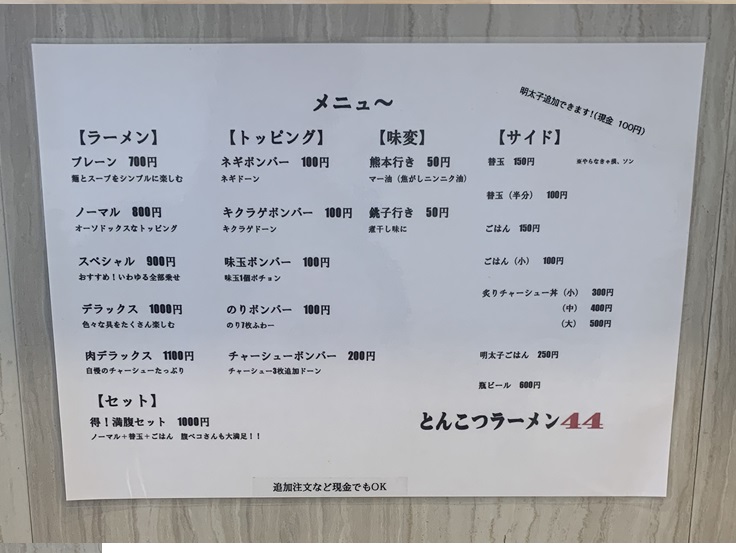 メニュ〜
明太子追加できます!(現金 100円)
【ラーメン】
プレーン 700円
麺とスープをシンプルに楽しむ
ノーマル 800円
オーソドックスなトッピング
スペシャル 900円
おすすめ!いわゆる全部乗せ
デラックス 1000円
色々な具をたくさん楽しむ
肉デラックス 1100円
自慢のチャーシューたっぷり
【セット】
得!満腹セット 1000円
ノーマル+替玉+ごはん 腹ペコさんも大満足!!
【トッピング】
ネギボンバー 100円
ネギドーン
キクラゲボンバー 100円
キクラゲドーン
味玉ボンバー 100円
味玉1個ポチョン
のりボンバー 100円
のり7枚ふわー
チャーシューボンバー 200円
チャーシュー3枚追加ドーン
【味変】
熊本行き 50円
マー油(焦がしニンニク油)
銚子行き 50円
煮干し味に
【サイド】
替玉 150円 ※やらなきゃ損、ソン
替玉(半分) 100円
ごはん 150円
ごはん(小) 100円
炙りチャーシュー丼(小) 300円
(中) 400円
(大) 500円
明太子ごはん 250円
瓶ビール 600円
とんこつラーメン44
追加注文など現金でもOK